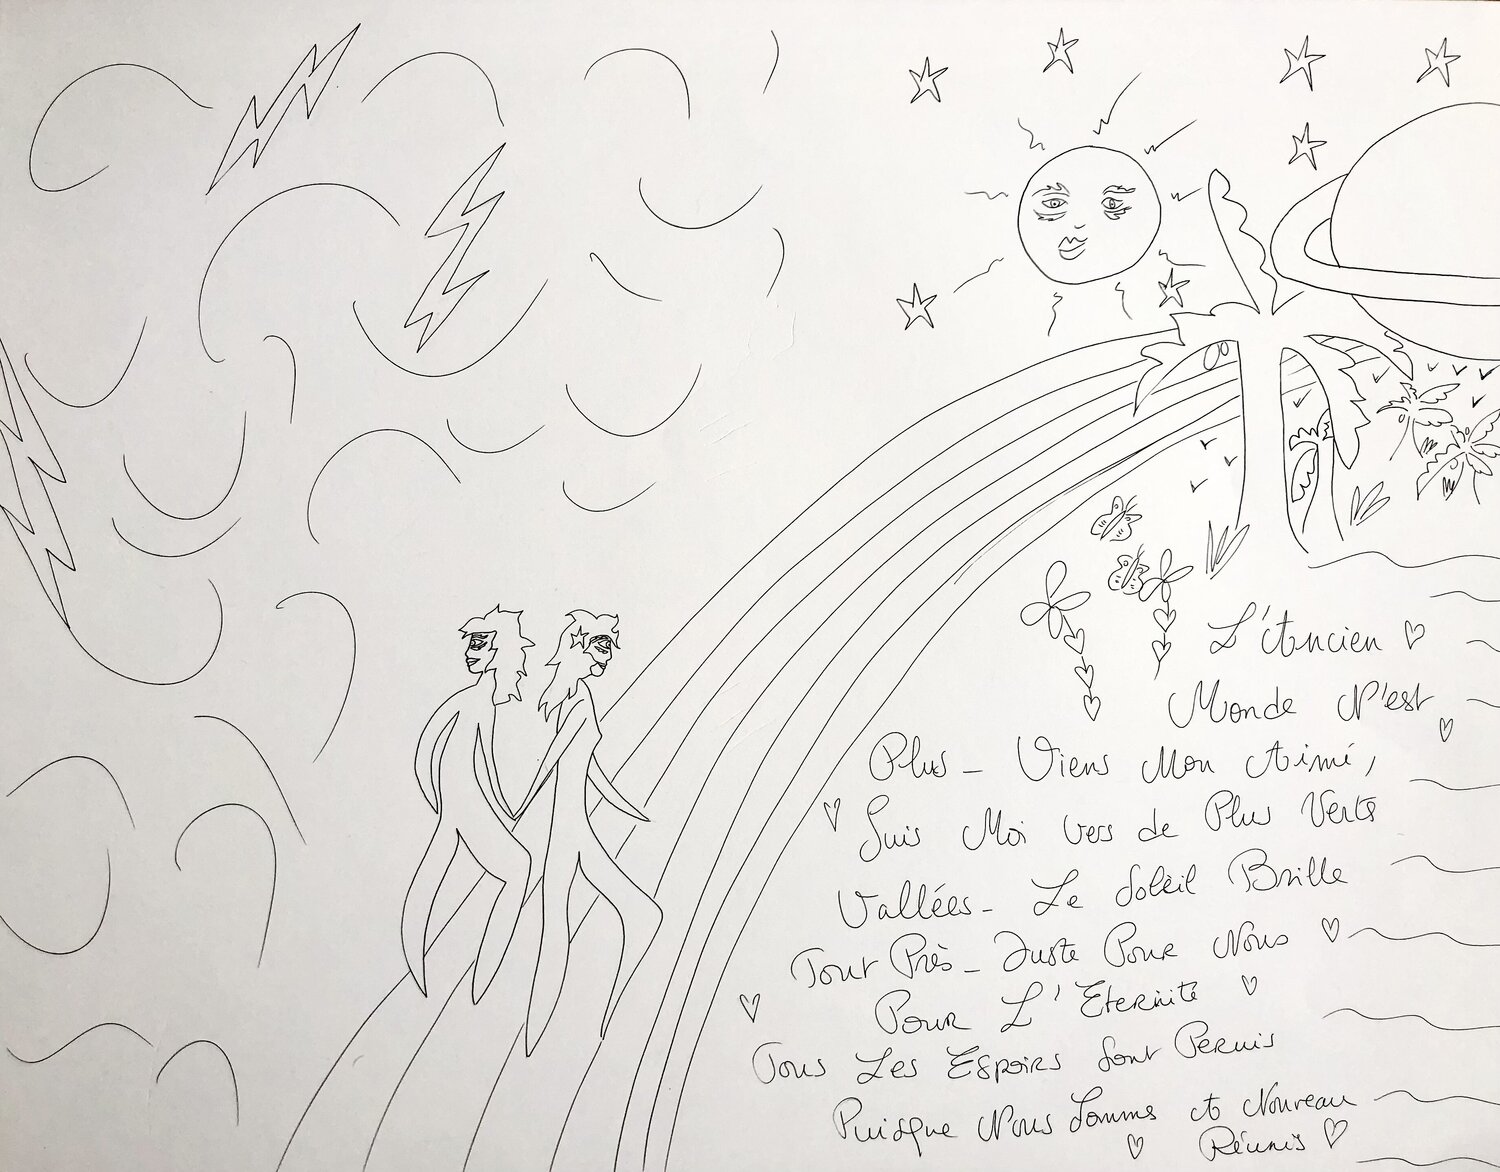 L'Ancien
Monde N'est
Plus - Viens Mon Aimé,
Suis Moi vers de Plus Verte
Vallées - Le Soleil Brille
Tout Près - Juste Pour Nous
Pour L'Eternité
Tous Les Espoirs Sont Permis
Puisque Nous Sommes à Nouveau
Réunis